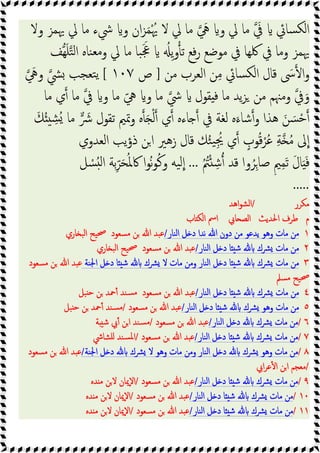 الكسائي يا فَيَّ ما لي ويا هَيَّ ما لي لا يُهْمَزان ويا شيء ما لي يهمز ولا
يهمز وما في كلها في موضع رفع تأْويلُه يا عَجَبا ما لي ومعناه التَّلَهُّف
والأَسَى قال الكسائي مِنَ العرب من [ ص ١٠٧ ] يتعجب بشيَّ وهَيَّ
وفَيَّ ومنهم من يزيد ما فيقول يا شيَّ ما ويا هيّ ما ويا فيَّ ما أَي ما
أَحْسَنَ هذا وأَشاءَه لغة في أَجاءه أَي أَلْجَأَه وتميم تقول شَرٌّ ما يُشِيئُكَ
إلى مُخَّةِ عُرْقُوبٍ أَي يُجِيئُك قال زهير ابن ذؤيب العدوي
فَيَالَ تَمِيمِ صابِرُوا قد أُشِئْتُمُ ... إليه وكُونُوا كالمُحَرِّبة البُسْل
.....
مكرر /الشواهد
م طرف الحديث الصحابي اسم الكتاب
١ من مات وهو يدعو من دون الله ندا دخل النار/عبد الله بن مسعود صحيح البخاري
٢ من مات يشرك بالله شيئا دخل النار/عبد الله بن مسعود صحيح البخاري
٣ من مات يشرك بالله شيئا دخل النار ومن مات لا يشرك بالله شيئا دخل الجنة عبد الله بن مسعود
صحيح مسلم
٤ من مات يشرك بالله شيئا دخل النار/عبد الله بن مسعود مسند أحمد بن حنبل
٥ من مات وهو يشرك بالله شيئا دخل النار/عبد الله بن مسعود /مسند أحمد بن حنبل
٦ /من مات يشرك بالله شيئا دخل النار/عبد الله بن مسعود /مسند ابن أبي شيبة
٧ /من مات يشرك بالله شيئا دخل النار/عبد الله بن مسعود /المسند للشاشي
٨ /من مات وهو يشرك بالله شيئا دخل النار ومن مات وهو لا يشرك بالله دخل الجنة/عبد الله بن مسعود
/معجم ابن الأعرابي
٩ /من مات يشرك بالله شيئا دخل النار/عبد الله بن مسعود /الإيمان لابن منده
١٠ /من مات يشرك بالله شيئا دخل النار/عبد الله بن مسعود /الإيمان لابن منده
١١ /من مات يشرك بالله شيئا دخل النار/عبد الله بن مسعود /الإيمان لابن منده